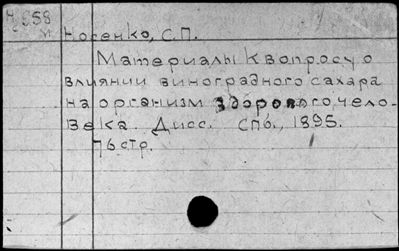 Носенко, С.П.
Материалы к вопросу о
влиянии виноградного сахара
на организм здорового чело-
века. Дисс. Спб., 1895.
76 стр.